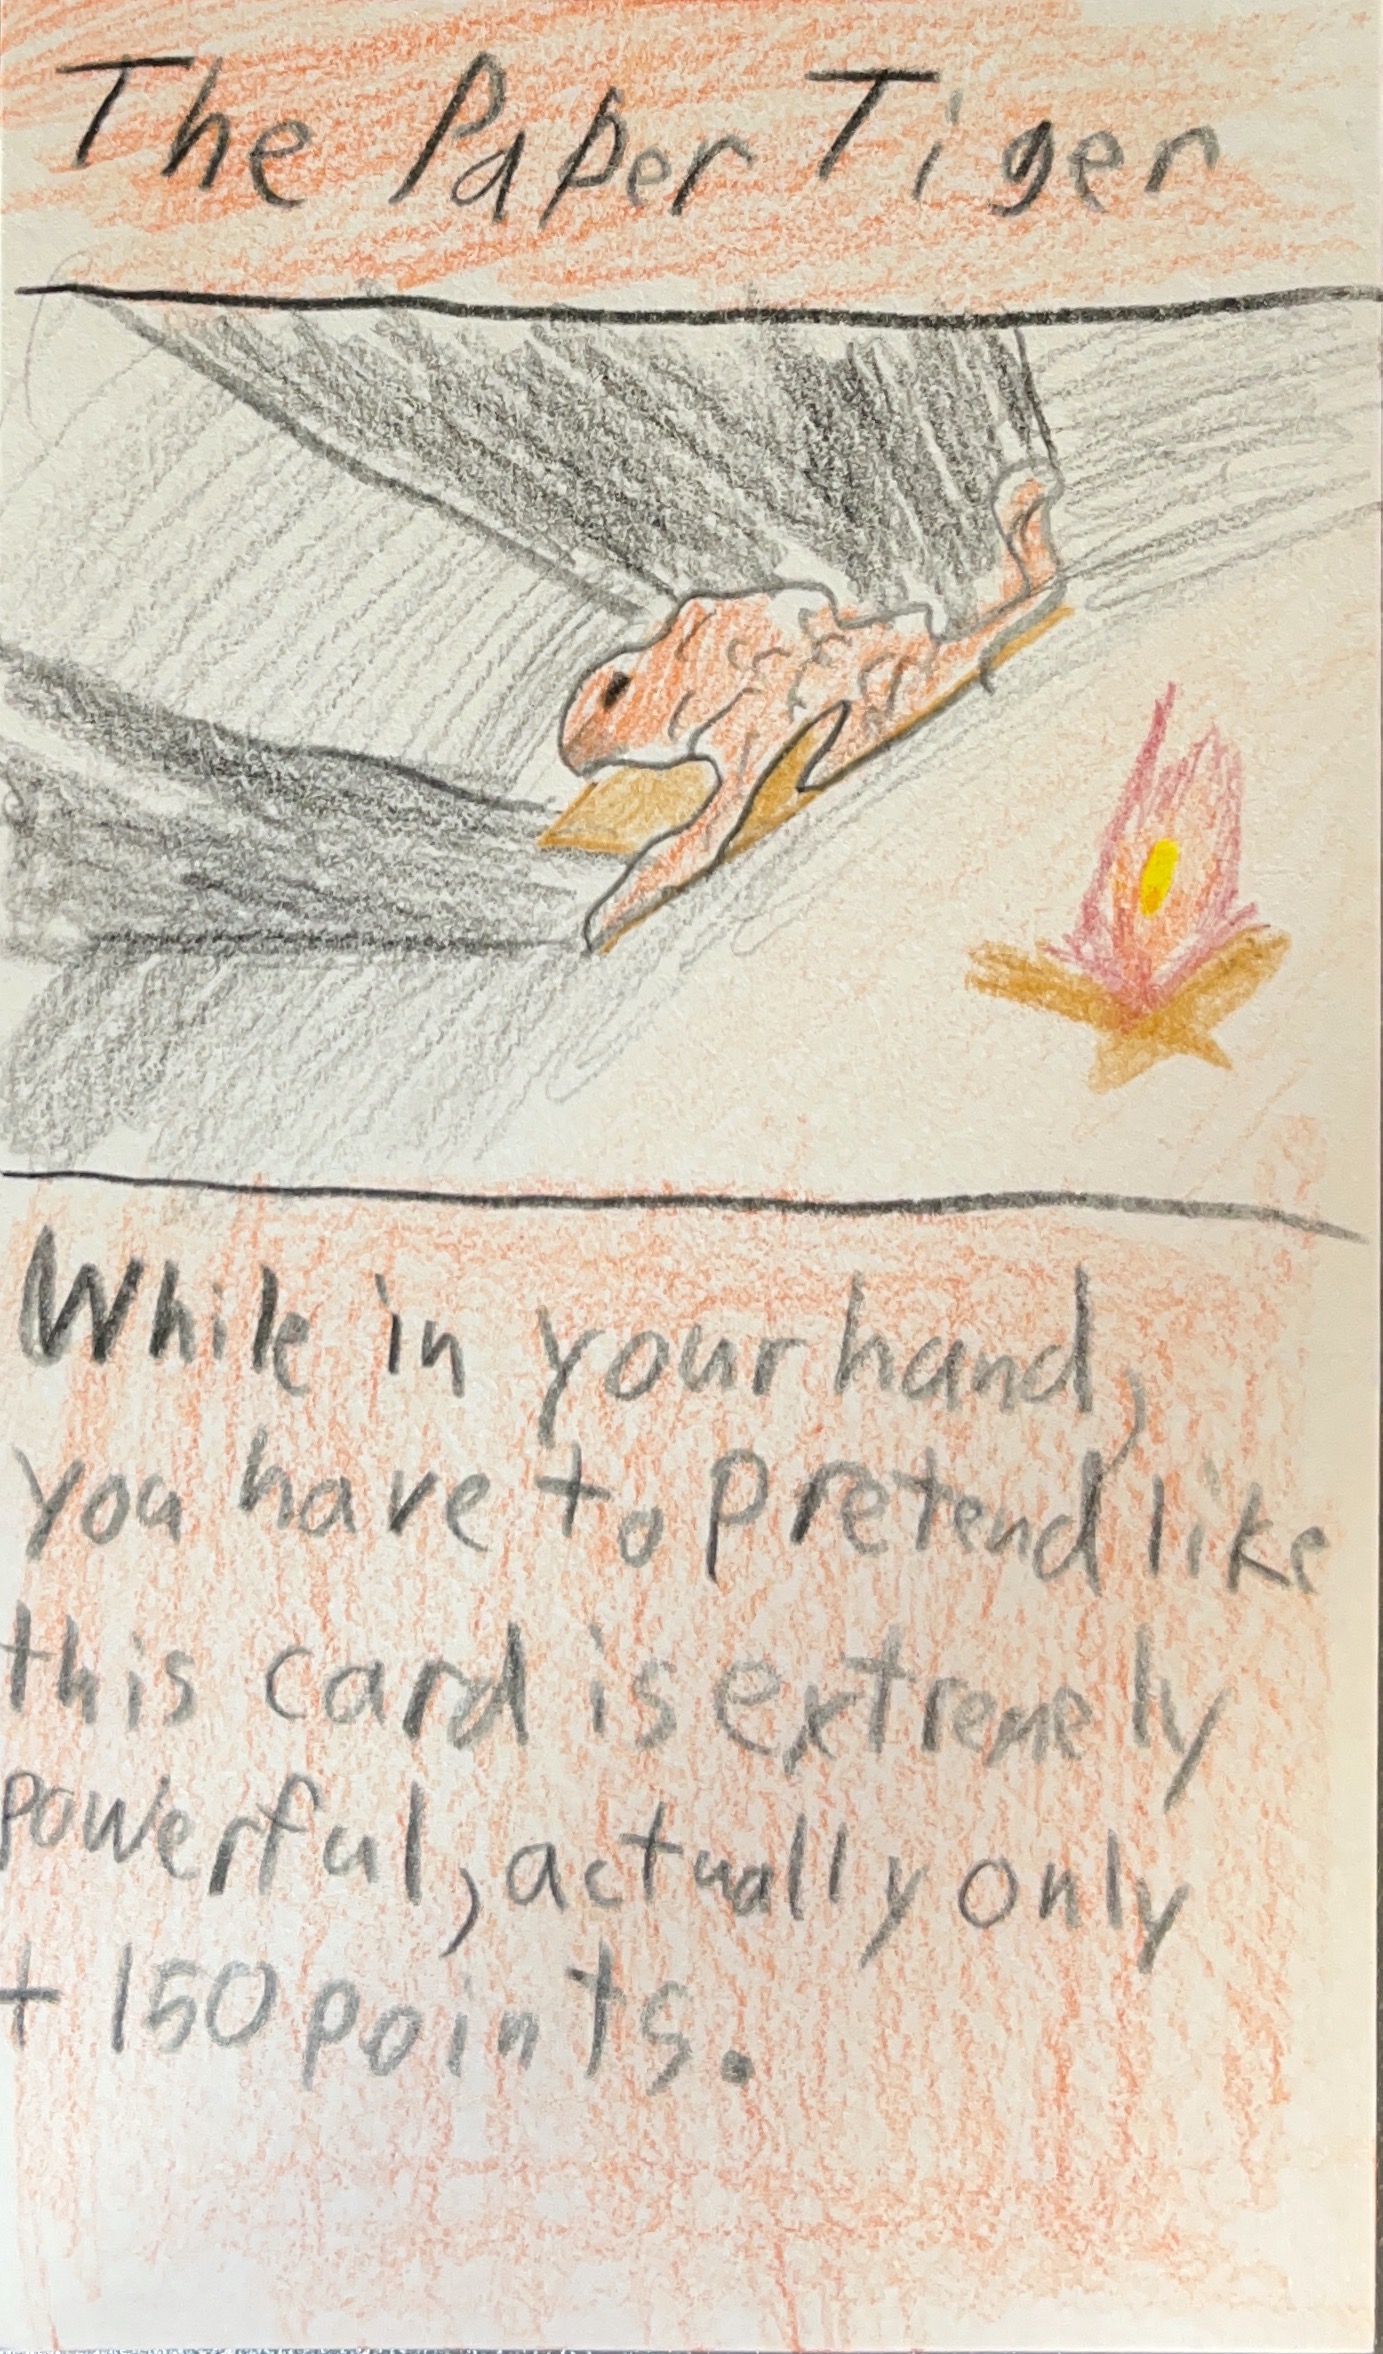 The Paper Tiger
While in your hand,
you have to pretend like
this card is extremely
powerful, actually only
+ 150 points.